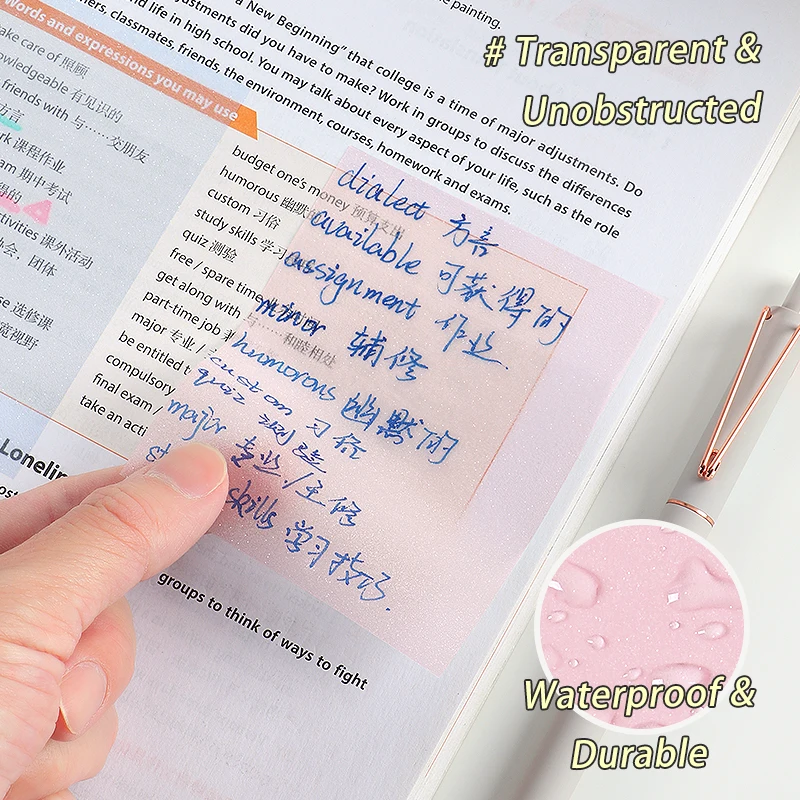 the painting.
a New Beginning" that college is a time of major adjustments. Do
adjustments did you have to make? Work in groups to discuss the differences
nd life in high school. You may talk about every aspect of your life, such as the role
hers, classmates, friends, the environment, courses, homework and exams.
Words and expressions you may use
ake care of 照顾
owledgeable 有见识的
friends with 与……交朋友
方言
rk 课程作业
am 期中考试
得的
ctivities 课外活动
办会、团体
se 选修课
宽视野
budget one's money 预算支出
humorous 幽默的
custom 习俗
study skills 学习
quiz 测验
free / spare time
get along with 与……和睦相处
part-time job
major 专业 /
be entitled t
compulsory
final exam /
take an acti
Lonelin
ost
groups to think of ways to fight
dialect 方言
available 可获得的
assignment 作业.
minor 辅修
humorous 幽默的
custom 习俗
quiz 测验
major 专业/主修
st skills 学习技巧.
# Transparent &
Unobstructed
Waterproof &
Durable